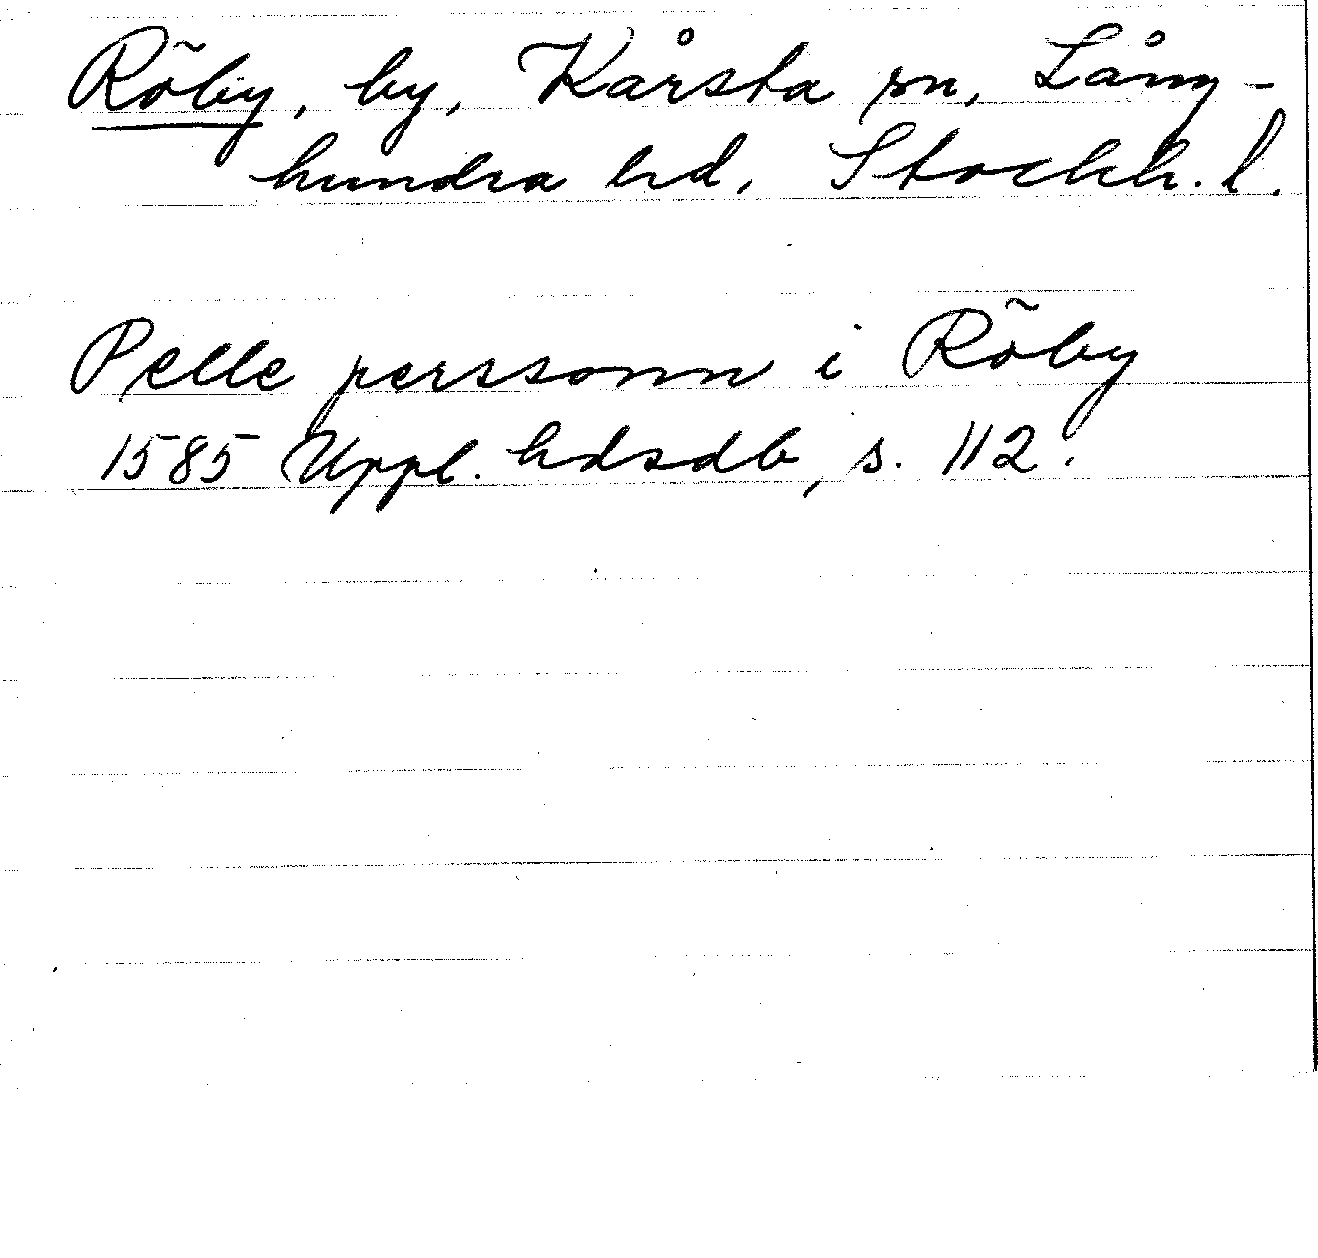 Röby, by, Kårsta sn, Lång-
hundra hd, Stockh. l.
Pelle perssonn i Röby
1585 Uppl. hdsdb, s. 112.